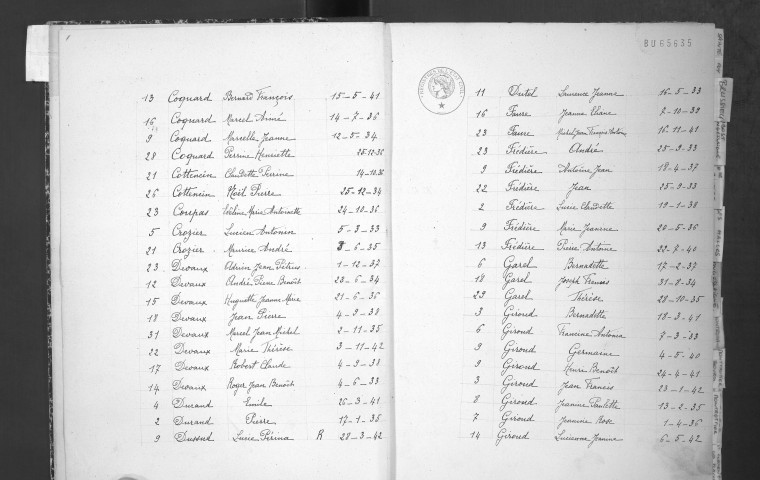 13 Coquard Bernard François 15-5-41
16 Coquard Marcel Aimé 14-7-36
9 Coquard Marcelle Jeanne 12-5-34
28 Coquard Perrine Henriette 25-12-36
21 Cottencin Claudette Perrine 14-10-36
26 Cottencin Noël Pierre 25-12-34
23 Corepas Marie Antoinette 24-10-36
5 Crozier Lucien Antonin 5-3-33
21 Crozier Maurice André 3-6-35
23 Devaux Adrien Jean Pétrus 1-12-37
12 Devaux André Pierre Benoît 28-6-34
15 Devaux Huguette Jeanne Marie 21-6-36
18 Devaux Jean Pierre 4-9-38
31 Devaux Marcel Jean Michel 2-11-35
22 Devaux Marie Thérèse 3-11-42
17 Devaux Robert Claude 4-9-38
14 Devaux Roger Jean Benoît 4-6-33
4 Durand Emile 26-3-41
2 Durand Pierre 17-1-35
9 Dussud Lucie Périna R 28-3-42
BU65635
11 Dutel Laurence Jeanne 16-5-33
16 Faure Jeanne Eliane 7-10-39
23 Faure Michel Jean Antoine 16-11-41
23 Frédière André 25-9-33
9 Frédière Antoine Jean 18-4-37
22 Frédière Jean 25-9-33
2 Frédière Lucie Claudette 19-1-38
9 Frédière Marie Jeanne 26-5-36
13 Frédière Pierre Antoine 22-7-40
6 Garel Bernadette 17-2-37
18 Garel Joseph Francis 31-8-34
29 Garel Thérèse 28-10-35
3 Giroud Bernadette 18-3-41
6 Giroud Francine Antonia 7-3-33
9 Giroud Germaine 4-5-40
9 Giroud Henri Benoît 24-4-41
3 Giroud Jean Francis 23-1-42
8 Giroud Jeanine Paulette 13-2-35
7 Giroud Jeannine Rose 1-4-36
14 Giroud Lucienne Jeanne 6-5-42